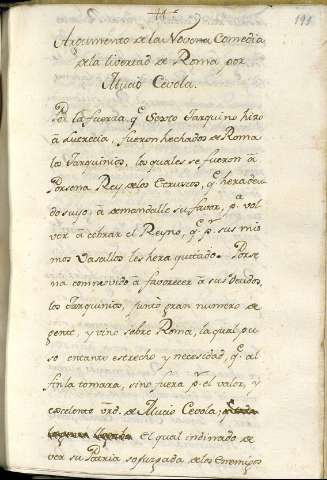 191
Argumento de la Novena Comedia
de la libertad de Roma por
Mucio Cevola.
Por la fuerza q.e Sexto Tarquino hizo
â Lucrecia, fueron hechados de Roma
los Tarquinios, los quales se fueron â
Porsena Rey de los Etruscos, q.e hera deu-
do suyo, â demandalle su favor, p.a vol
ver â cobrar el Reyno, q.e p.r sus mis
mos Vasallos les hera quitado. Porse
na commovido â favorecer â sus deudos
los Tarquinios, juntó gran numero de
gente, y vino sobre Roma, la qual pu
so en tanto estrecho y necesidad, q.e al
fin la tomara, sino fuera p.r el valor, y
excelente vrd. de Mucio Cevola;
el qual indinado de
ver su Patria sojuzgada de los Enemigos